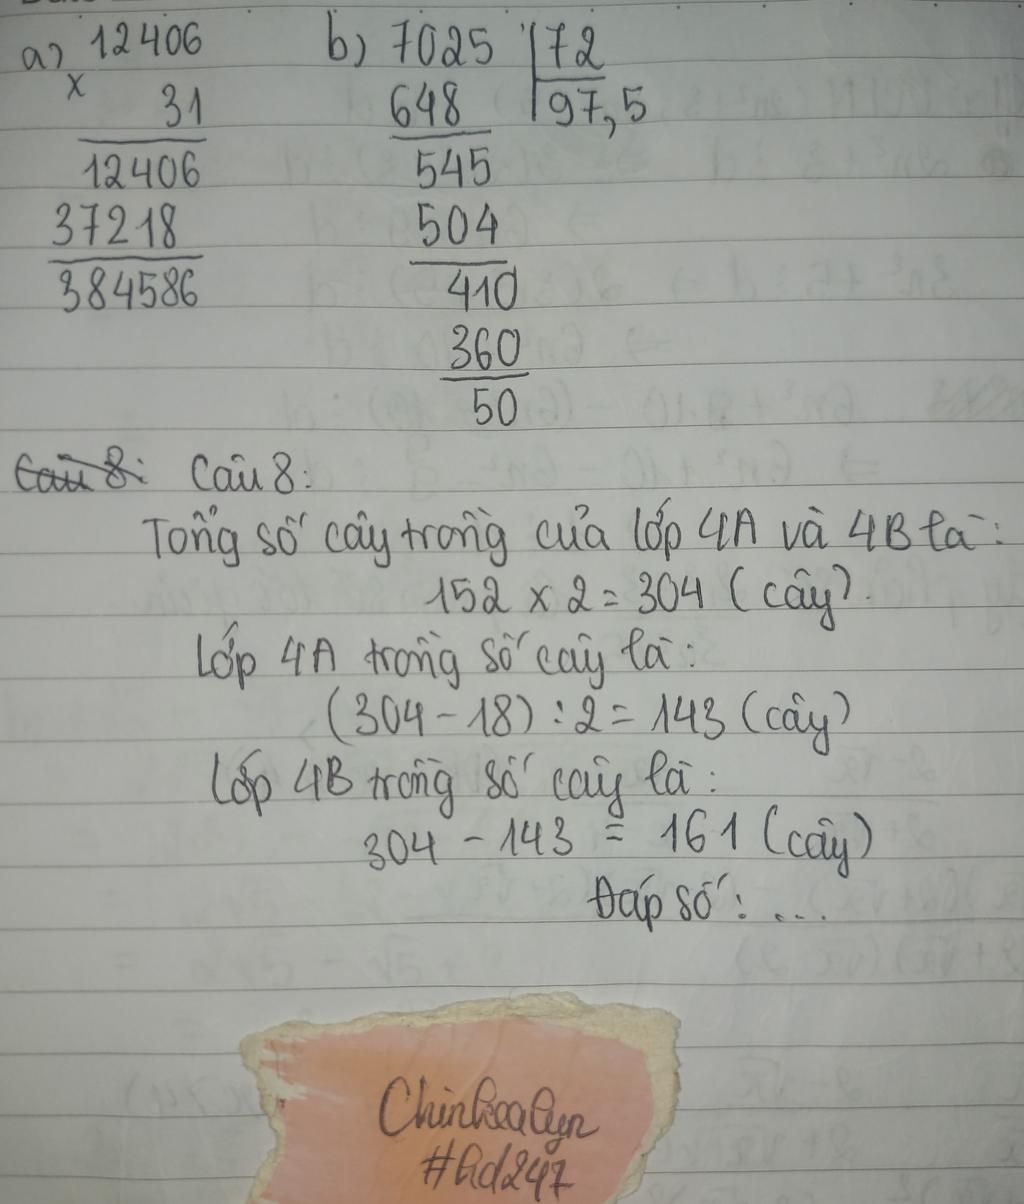 a) 12406
x
31
12406
37218
384586
b) 7025 72
648 97,5
545
504
410
360
50
Câu 8: Câu 8:
Tổng số cây trồng của lớp 4A và 4B là:
152 x 2 = 304 (cây).
Lớp 4A trồng số cây là:
(304 - 18) : 2 = 143 (cây)
Lớp 4B trồng số cây là:
304 - 143 = 161 (cây)
Đáp số: ...
#hd247